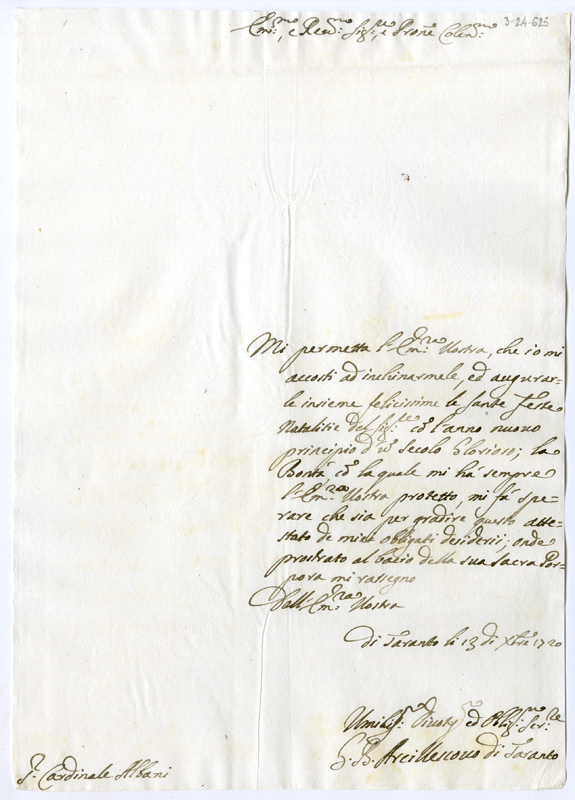 3-24-625
Em.mo, e Reu.mo Sig.re, e Prone Colen.mo
Mi permetta l'Em.za Vostra, che io mi
accosti ad inchinarmele, ed augurar=
le insieme felicissime le sante feste
Natalitie del Sig.re cõ l'anno nuouo
principio d'un secolo Glorioso; la
Bontà cõ la quale mi hà sempre
l'Em.za Vostra protetto mi fà spe=
rare che sia per gradire questo atte=
stato de miei obligati desiderii; onde
prostrato al bacio della sua Sacra Por=
pora mi rassegno
Dell'Em.za Vostra
di Taranto li 13 di Xbre 1720
Umiliss.mo Diuotiss.mo ed Obligss.mo Ser.re
G. B. Arciuescouo di Taranto
S. Cardinale Albani